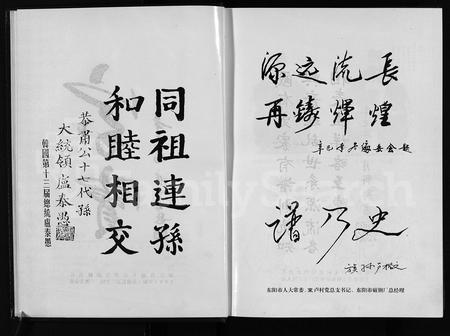 同祖連孫
和睦相交
恭肅公十七代孫
大統領盧泰愚
韓國第十三屆總統盧泰愚
源远流長
再鑄輝煌
辛巳年冬
譜乃史
族孙卢
东阳市人大常委、寀卢村党总支书记、东阳市磁钢厂总经理
FamilySearch